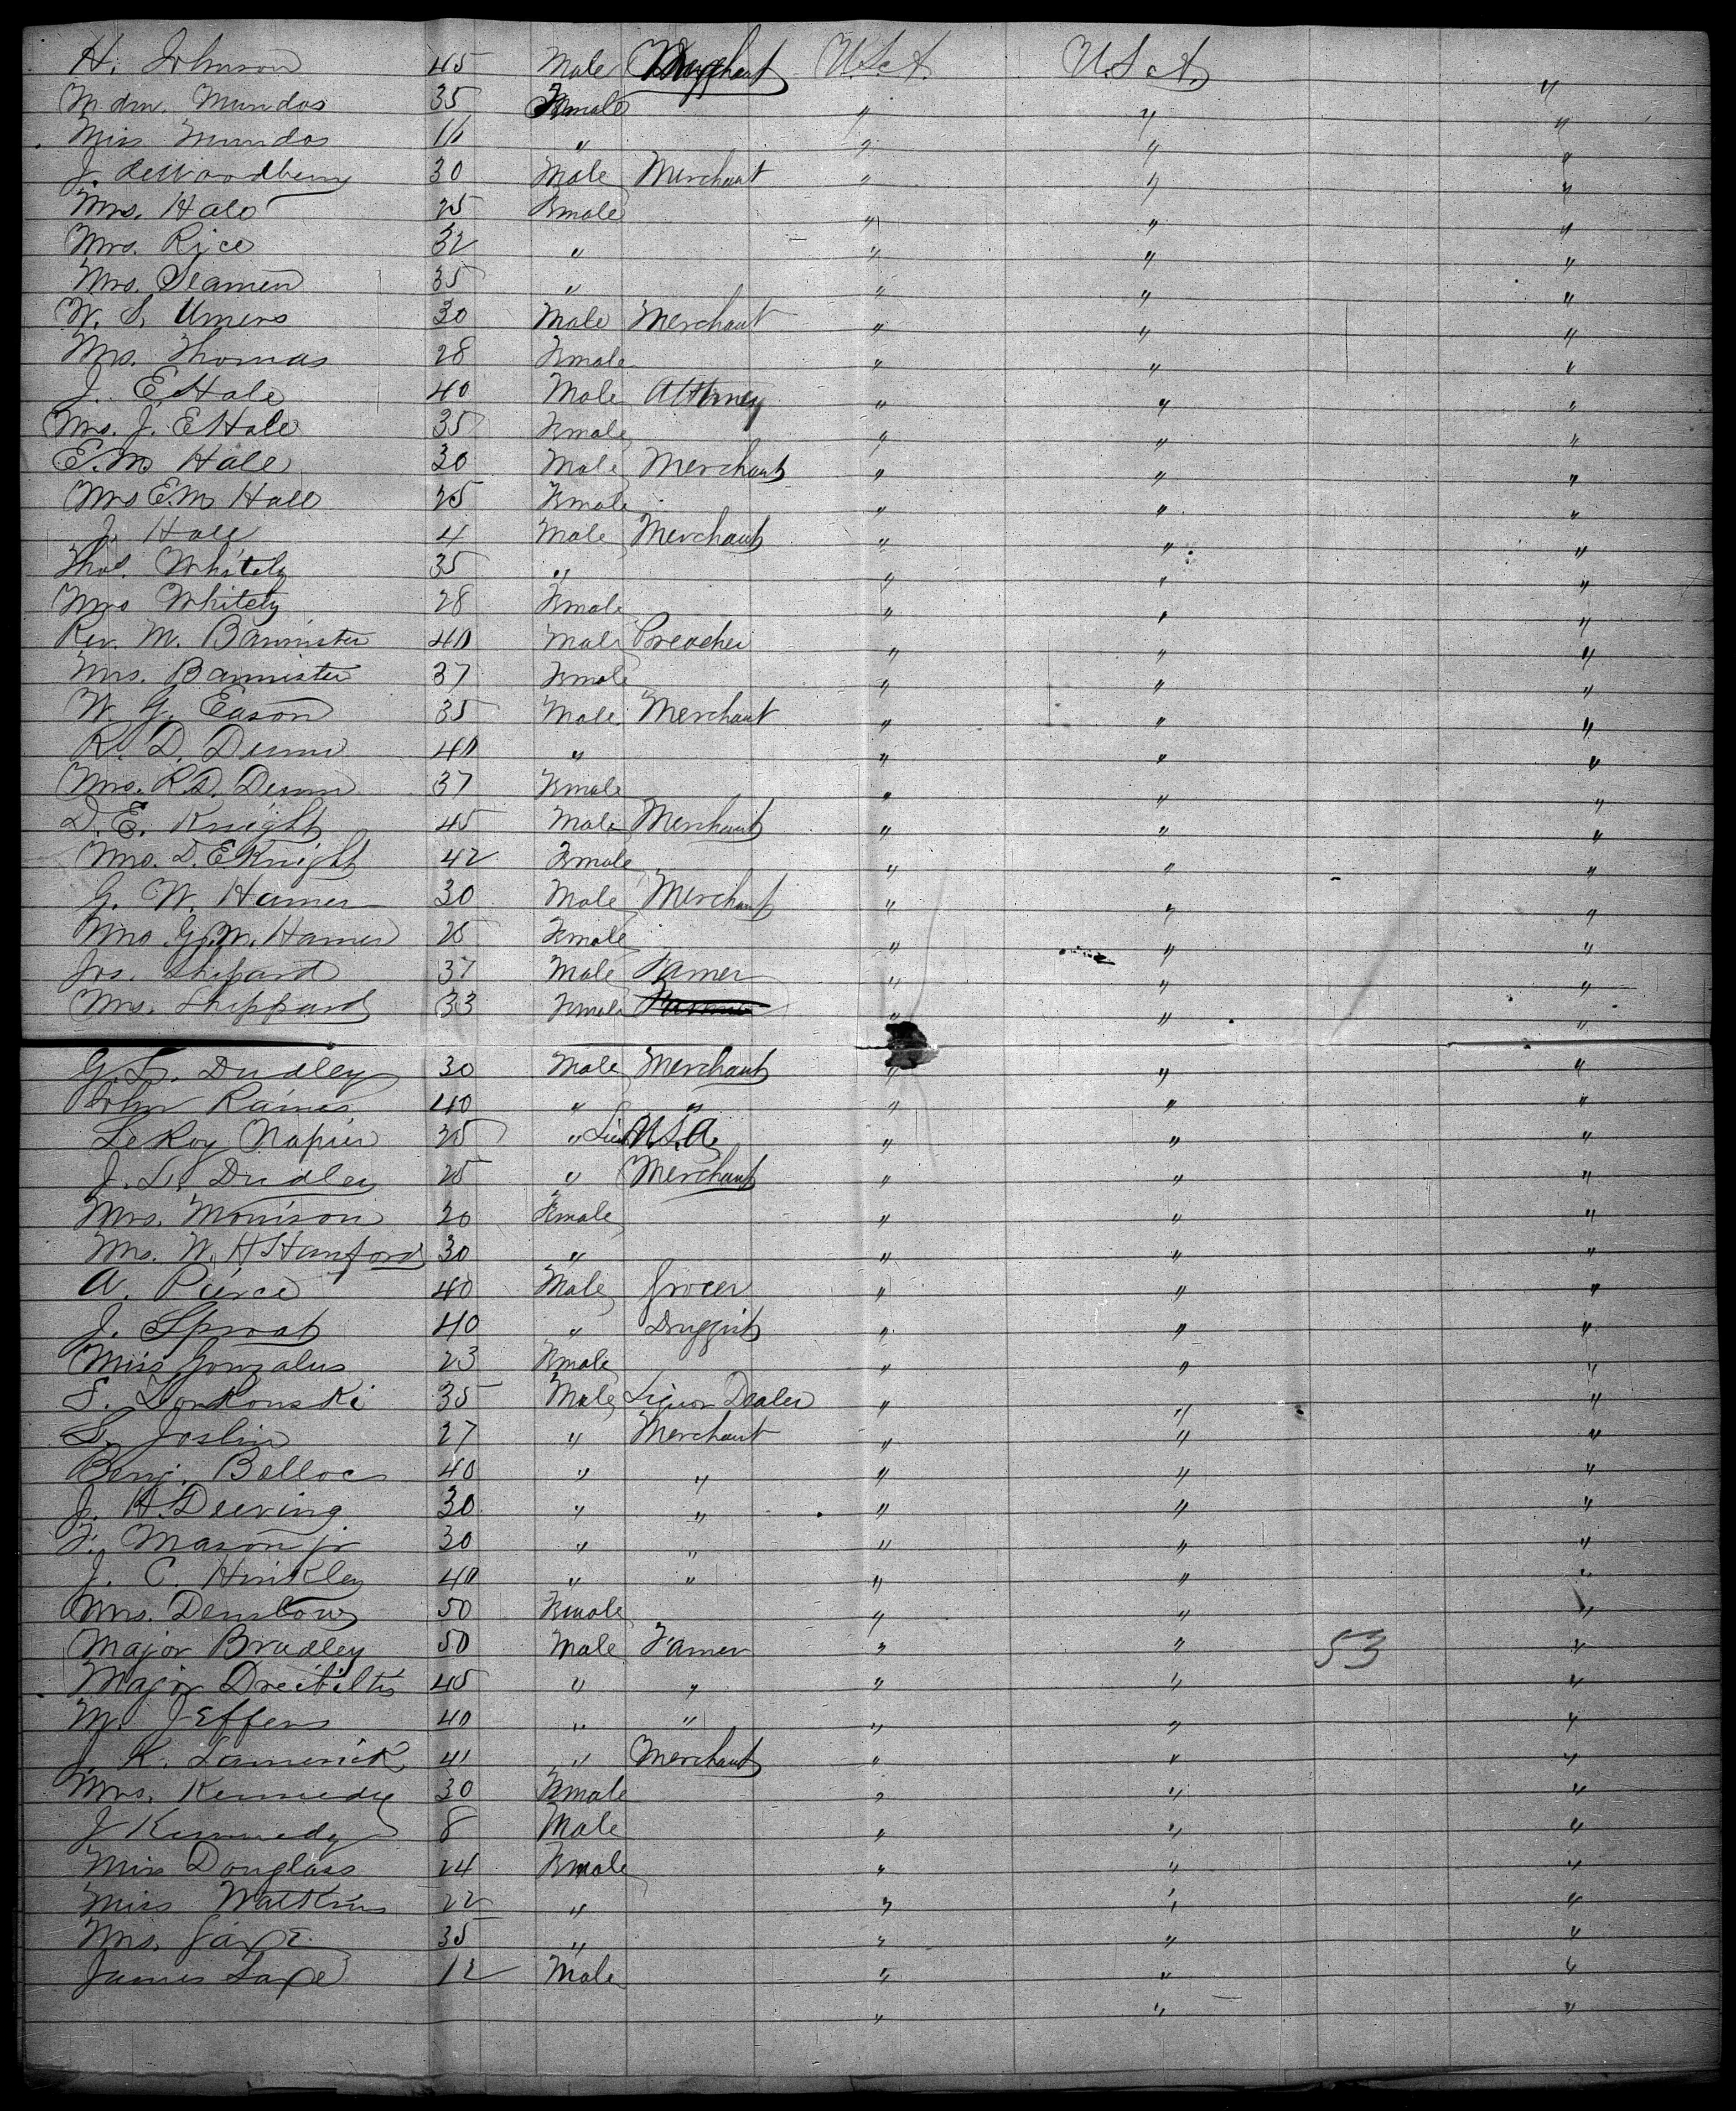 H. Johnson 45 Male Merchant U.S.A. U.S.A. "
Mdm. Mundos 35 Female " " "
Miss Mundos 16 " " " "
J. deWoodberry 30 Male Merchant " " "
Mrs. Hale 25 Female " " "
Mrs. Rice 32 " " " "
Mrs. Seamen 35 " " " "
W. S. Umers 30 Male Merchant " " "
Mrs. Thomas 28 Female " " "
J. E Hale 40 Male Attorney " " "
Mrs. J. E Hale 35 Female " " "
E. M. Hall 30 Male Merchant " " "
Mrs E. M. Hall 25 Female " " "
J. Hall 4 Male Merchant " " "
Thos. Whitely 35 " " " "
Mrs Whitely 28 Female " " "
Rev. M. Bannister 40 Male Preacher " " "
Mrs. Bannister 37 Female " " "
W. G. Eason 35 Male Merchant " " "
R. D. Dunn 40 " " " "
Mrs. R. D. Dunn 37 Female " " "
D. E. Knight 45 Male Merchant " " "
Mrs. D. E Knight 42 Female " " "
G. W. Hamer 30 Male Merchant " " "
Mrs G. W. Hamer 25 Female " " "
Jos. Shepard 37 Male Famer " " "
Mrs. Sheppard 33 Female Farmer " " "
G. L. Dudley 30 Male Merchant " " "
John Raines 40 " " " " "
LeRoy Napier 25 " Lieu U.S.A. " " "
J. L. Dudley 25 " Merchant " " "
Mrs. Morrison 20 Female " " "
Mrs. W. H Hanford 30 " " " "
A. Pierce 40 Male Grocer " " "
J. Sproat 40 " Druggist " " "
Miss Gonzalus 23 Female " " "
S. Zonkouski 35 Male Liquor Dealer " " "
S. Joslin 27 " Merchant " " "
Benj. Belloc 40 " " " " "
J. H. Deering 30 " " " " "
F. Mason jr 30 " " " " "
J. C. Hinkley 40 " " " " "
Mrs. Denslow 50 Female " " "
Major Bradley 50 Male Famer " " 53 "
Major 45 " " " " "
M. Jeffers 40 " " " " "
J. K. Lamerick 41 " Merchant " " "
Mrs. Kennedy 30 Female " " "
J Kennedy 8 Male " " "
Miss Douglass 24 Female " " "
Miss Watkins 22 " " " "
Mrs. Saxe 35 " " " "
James Saxe 12 Male " " "
" " "